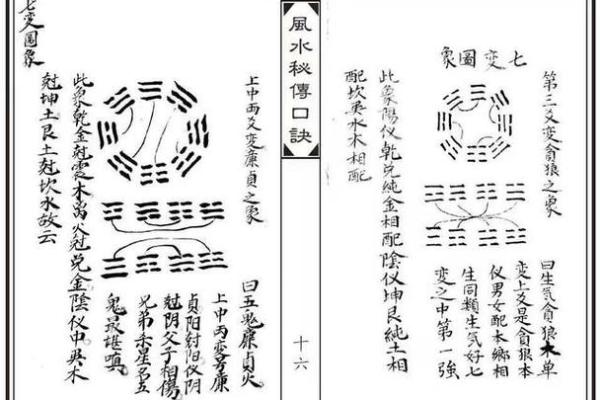 七变圖象
第三爻变貪狼之象
曰生气貪狼木单
变上爻是貪狼本
仪男女配本鄉相
生同類生气好七
变之中第一強
此象陽仪乾兌純金相配陰仪坤艮純土相
配坎巽水木相配
風水秘傳口訣
十六
上中两爻变廉貞之象
曰五鬼廉貞火
上中两变为廉
貞阳尅阳仪阴
尅阴父子相傷
兄弟杀星名五
鬼最堪嗔
此象乾金尅震木离火尅兌金陰仪中巽木
尅坤土艮土尅坎水故云
七变圖象